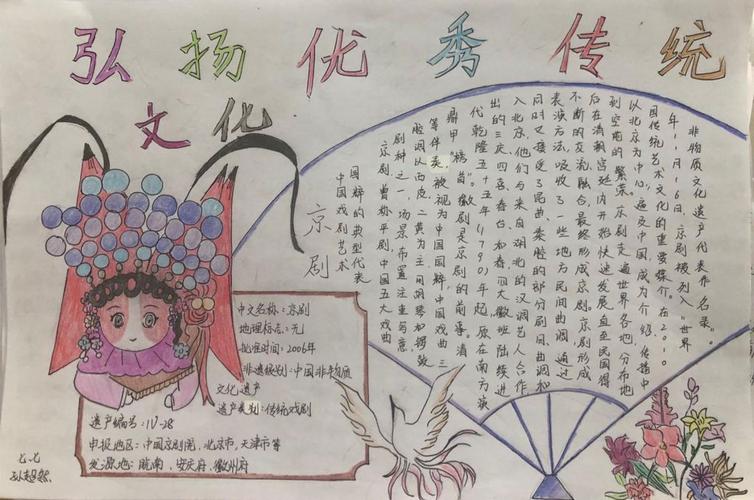 弘扬优秀传统
文化
京剧
中国戏剧艺术
国粹的典型代表
京剧，曾称平剧，中国五大戏曲
剧种之一，场景布置注重写意，
腔调以西皮、二黄为主，用胡琴和锣鼓
等伴奏，被视为中国国粹，中国戏曲三
鼎甲“榜首”。徽剧是京剧的前身。清
代乾隆五十五年(1790)年起，原在南方演
出的三庆、四喜、春台、和春，四大徽班陆续进
入北京，他们与来自湖北的汉调艺人合作
同时又接受了昆曲、秦腔的部分剧目、曲调和
表演方法，吸收了一些地方民间曲调，通过
不断的交流、融合，最终形成京剧。京剧形成
后在清朝宫廷内开始快速发展，直至民国得
到空前的繁荣。京剧走遍世界各地，分布地
以北京为中心，遍及中国，成为介绍、传播中
国传统艺术文化的重要媒介。在2010
年11月16日，京剧被列入“世界
非物质文化遗产代表作名录》。
中文名称：京剧
地理标志：无
批准时间：2006年
非遗级别：中国非物质
文化遗产
遗产类别：传统戏剧
遗产编号：IV-28
申报地区：中国京剧院、北京市、天津市等
发源地：皖南、安庆府、徽州府
七、七